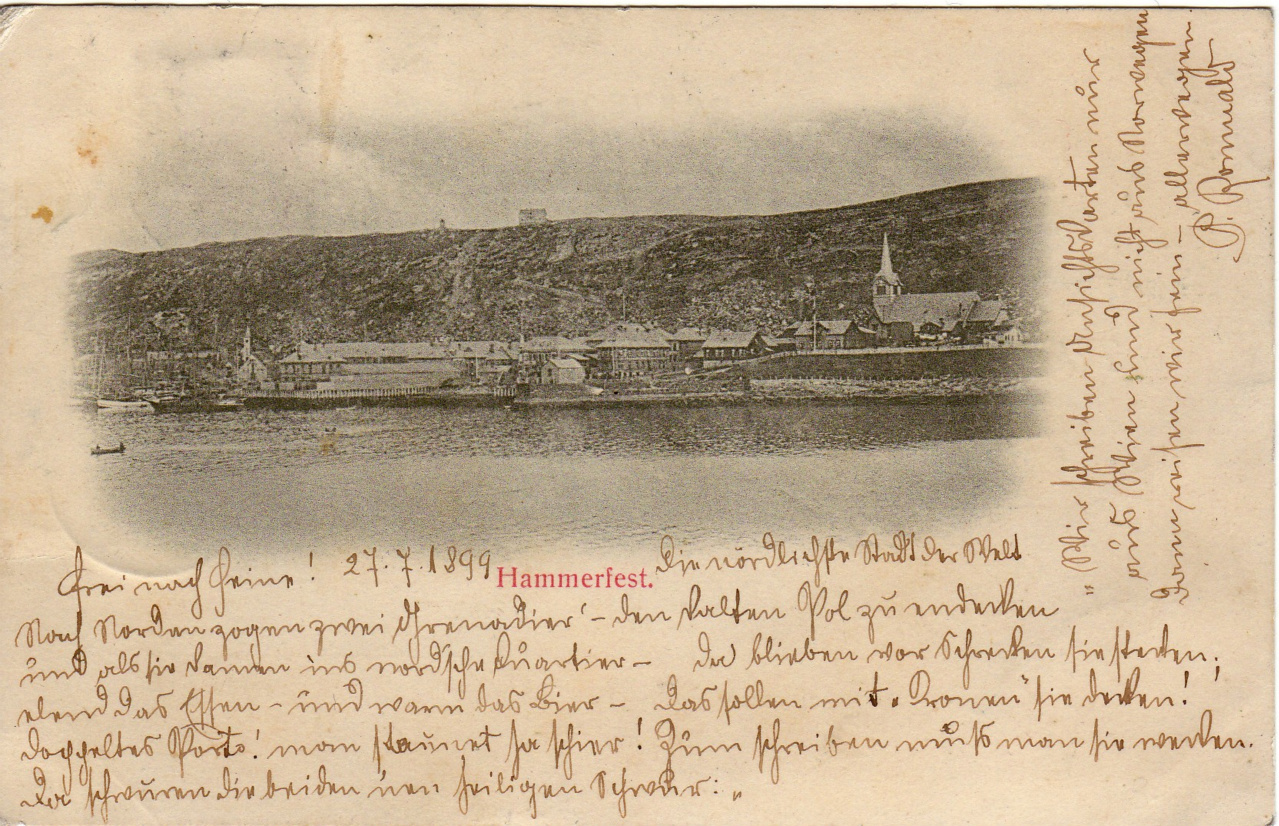 Frei nach Heine! 27.7.1899 Hammerfest. Die nördlichste Stadt der Welt
Nach Norden zogen zwei Grenadier' – den kalten Pol zu endecken
und als sie kamen ins nordsche Quartier – da blieben vor Schrecken sie stecken;
elend das Essen – und warm das Bier – das sollen mit „Kronen" sie decken!
doppeltes Porto! man staunet ja schier! Zum schreiben muß man sie wecken.
Da schwuren die beiden nen heiligen Schwur: „
"Wir schreiben Ansichtskarten nur
aus Wien und nicht aus Norwegen
denn reisen wir hin – allerwegen
P. Romuald